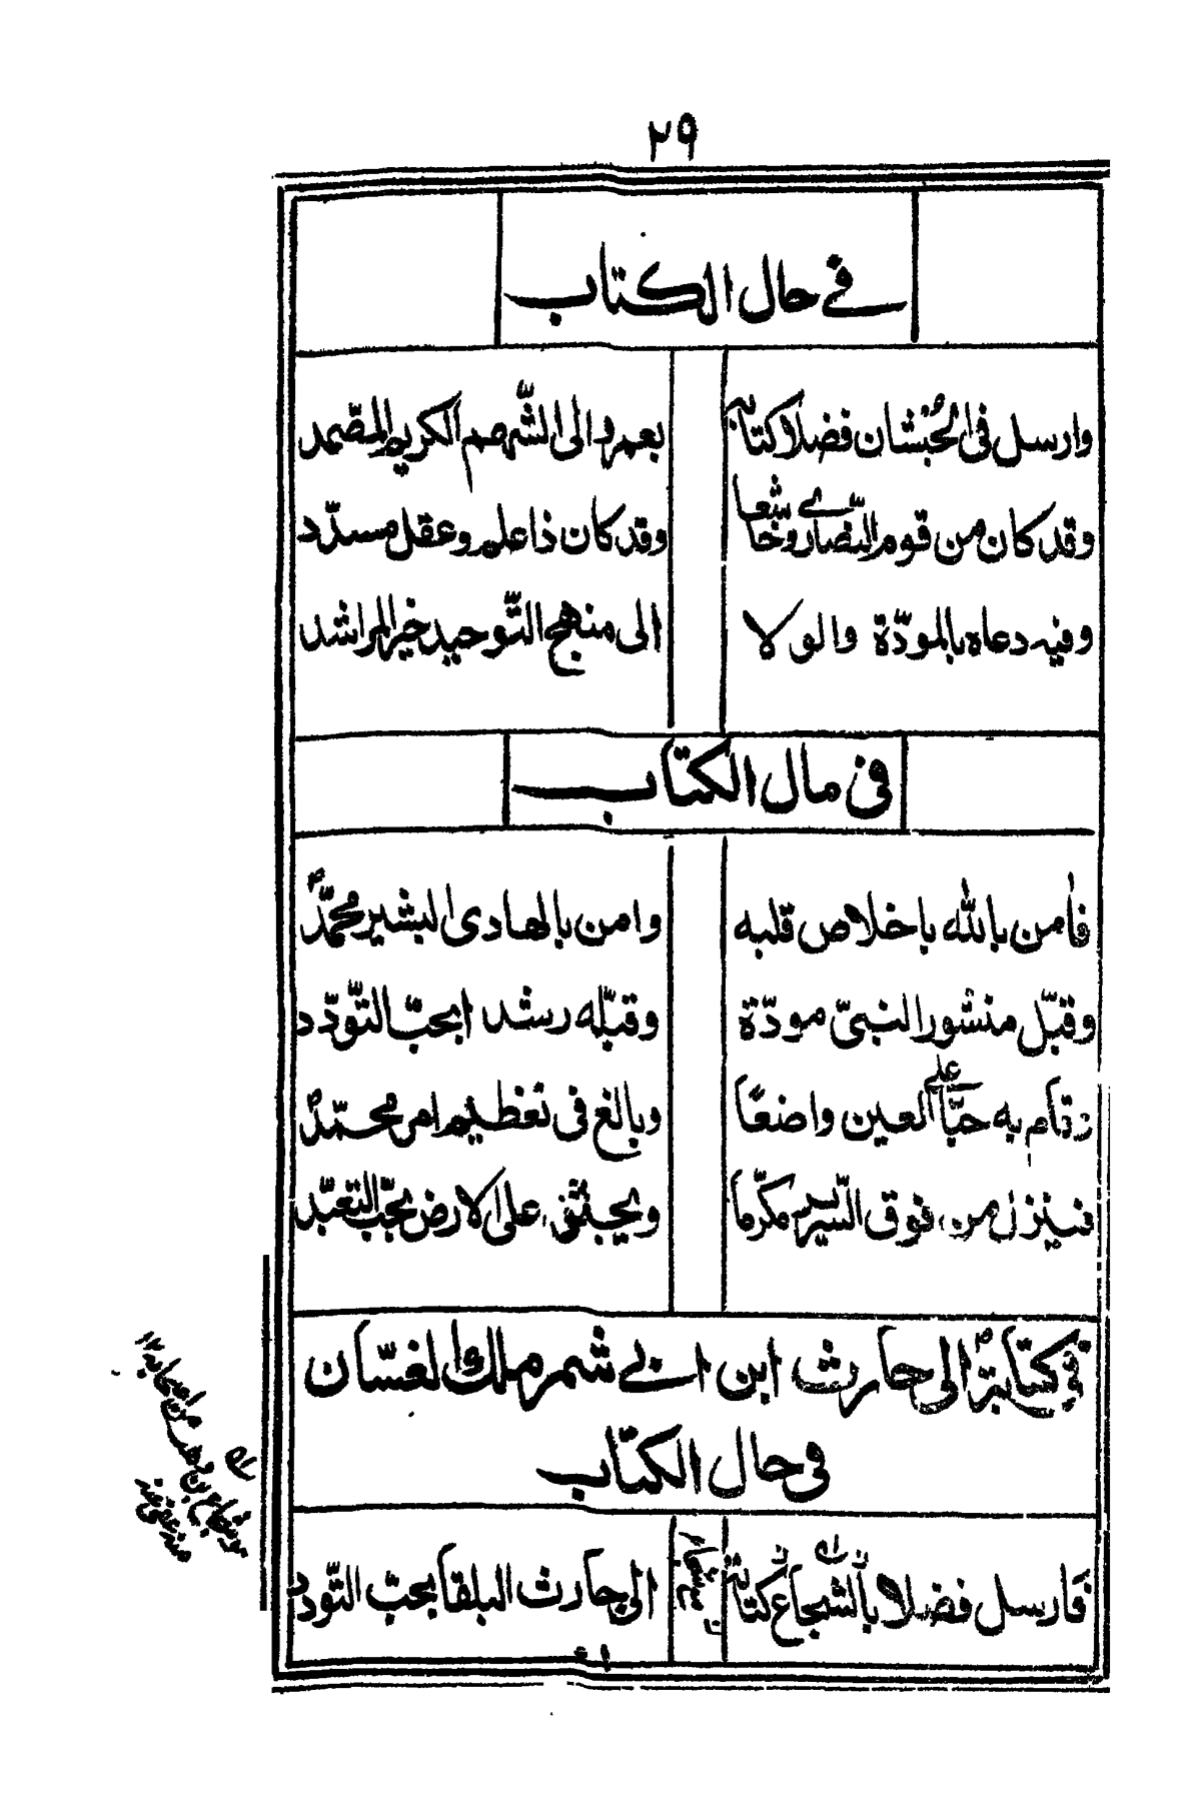 ٢٩
في حال الكتاب
وارسل فى الحُبْشان فضلا كتابه بعمرو الى الشّهم الكريم المصّمد
وقد كان من قوم النّصارى وخاشعا وقد كان ذا علم وعقل مسدّد
وفيه دعاه بالمودّة والولا الى منهج التّوحيد خير المراشد
فى مال الكتاب
فأمن بالله باخلاص قلبه وامن بالهادى البشير محمّد
وقبّل منشور النبىّ مودّة وقبّله رشد ابحبّ التّودّد
وقام به حبّا على العين واضعًا وبالغ فى تعظيم امر محمّد
فينزل من فوق السّرير مكرّما ويجثو على الارض بحبّ التّعبّد
فى كتابة الى حارث ابن ابي شمر ملك الغسّان
فى حال الكتاب
فارسل فضلا بالشجاع كتابة الى حارث البلقا بحبّ التّودد